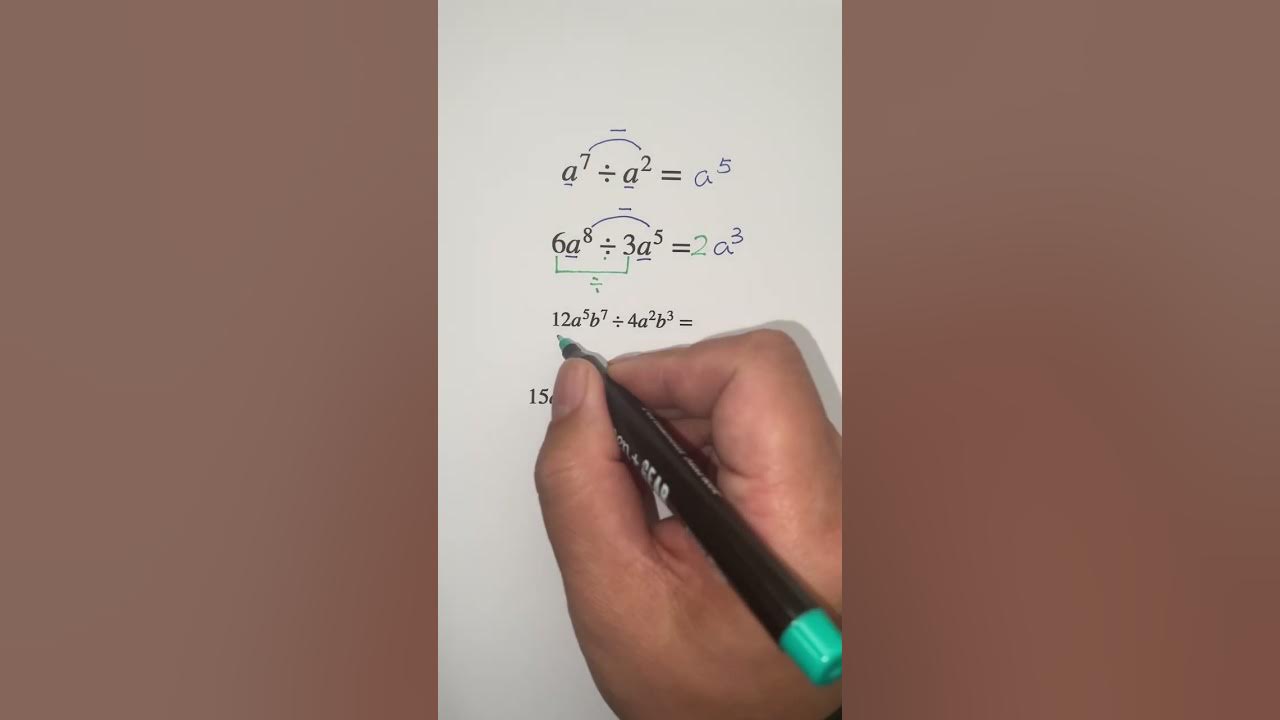 −
a⁷ ÷ a² = a⁵
−
6a⁸ ÷ 3a⁵ = 2a³
÷
12a⁵b⁷ ÷ 4a²b³ =
15